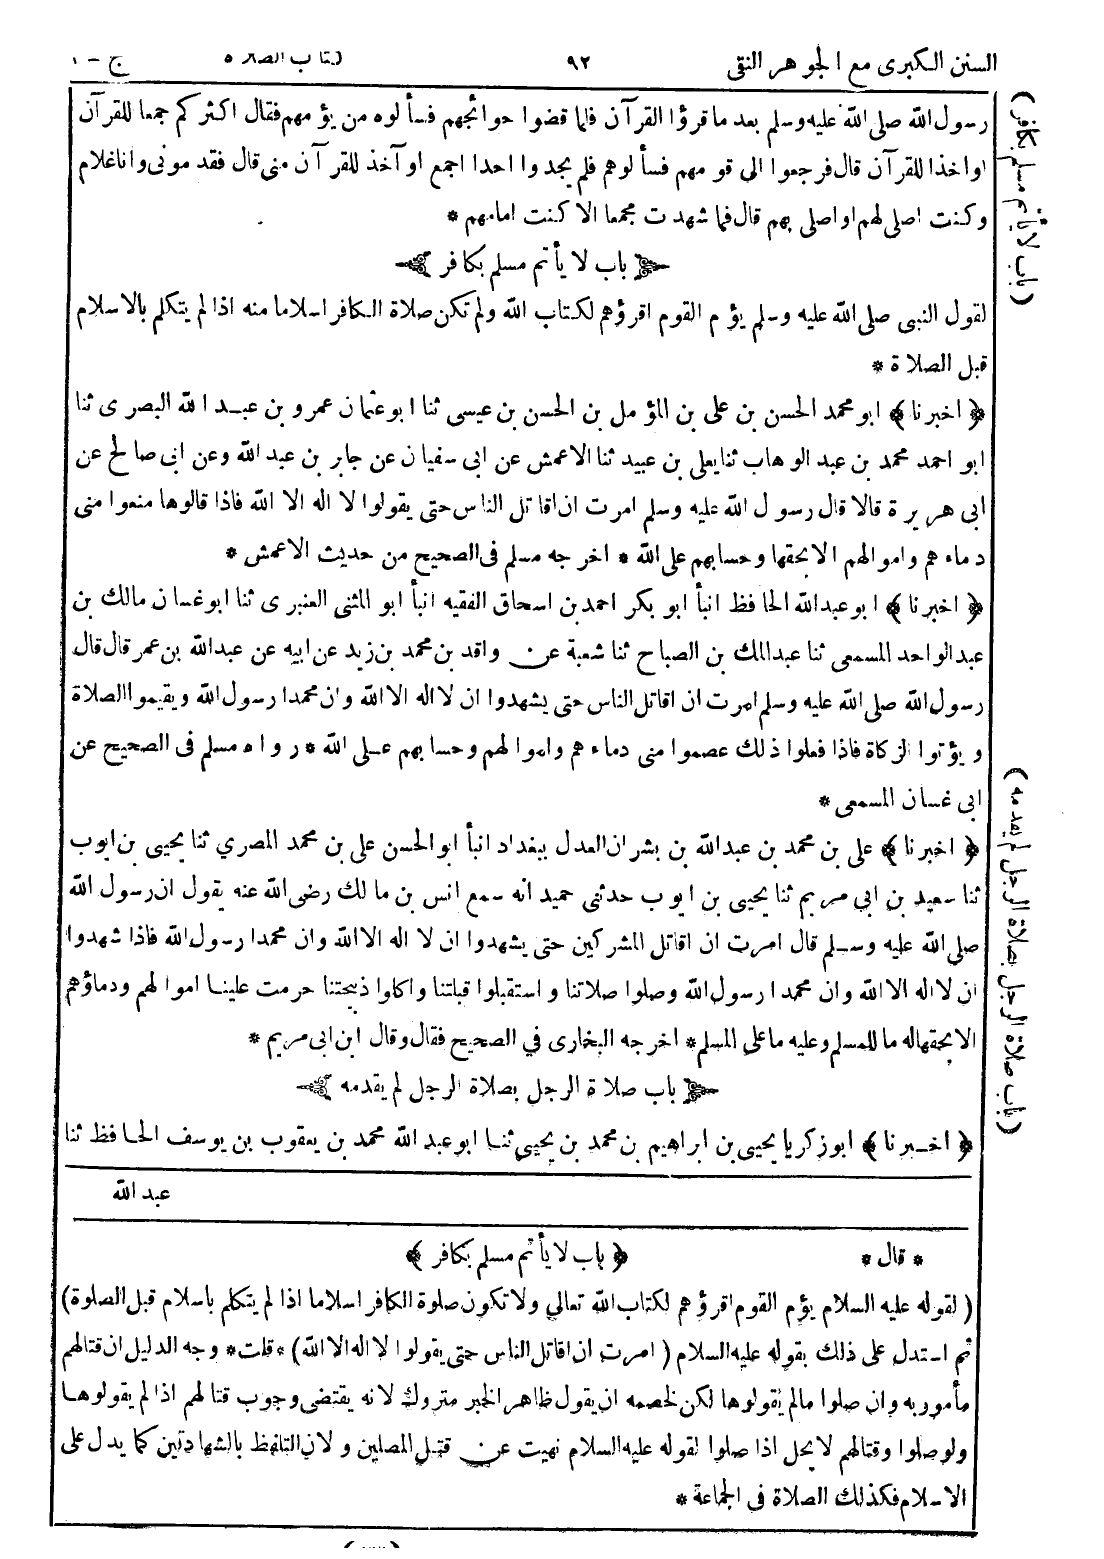 السنن الكبرى مع الجوهر النقى ٩٢ كتاب الصلاة ج - ١
رسول الله صلى الله عليه وسلم بعد ما قرؤا القرآن فلما قضوا حوائجهم فسألوه من يؤمهم فقال اكثركم جمعا للقرآن
اواخذا للقرآن قال فرجعوا الى قومهم فسألوهم فلم يجدوا احدا اجمع اوآخذ للقرآن منى قال فقد مونى وانا غلام
وكنت اصلى لهم اواصلى بهم قال فما شهدت مجمعا الا كنت امامهم *
باب لا يأتم مسلم بكافر
لقول النبى صلى الله عليه وسلم يؤم القوم اقرؤهم لكتاب الله ولم تكن صلاة الكافر اسلاما منه اذا لم يتكلم بالاسلام
قبل الصلاة *
﴿ اخبرنا ﴾ ابو محمد الحسن بن على بن المؤمل بن الحسن بن عيسى ثنا ابو عثمان عمرو بن عبد الله البصرى ثنا
ابو احمد محمد بن عبد الوهاب ثنا يعلى بن عبيد ثنا الاعمش عن ابى سفيان عن جابر بن عبد الله وعن ابى صالح عن
ابى هريرة قالا قال رسول الله عليه وسلم امرت ان اقاتل الناس حتى يقولوا لا اله الا الله فاذا قالوها منعوا منى
دماءهم واموالهم الا بحقها وحسابهم على الله * اخرجه مسلم فى الصحيح من حديث الاعمش *
﴿ اخبرنا ﴾ ابو عبدالله الحافظ انبأ ابو بكر احمد بن اسحاق الفقيه انبأ ابو المثنى العنبرى ثنا ابو غسان مالك بن
عبدالواحد المسمعى ثنا عبدالملك بن الصباح ثنا شعبة عن واقد بن محمد بن زيد عن ابيه عن عبدالله بن عمر قال قال
رسول الله صلى الله عليه وسلم امرت ان اقاتل الناس حتى يشهدوا ان لا اله الا الله وان محمدا رسول الله ويقيموا الصلاة
ويؤتوا الزكاة فاذا فعلوا ذلك عصموا منى دماءهم واموالهم وحسابهم على الله * رواه مسلم فى الصحيح عن
ابى غسان المسمعى *
﴿ اخبرنا ﴾ على بن محمد بن عبدالله بن بشران العدل ببغداد انبأ ابو الحسن على بن محمد المصري ثنا يحيى بن ايوب
ثنا سعيد بن ابي مريم ثنا يحيى بن ايوب حدثني حميد انه سمع انس بن مالك رضى الله عنه يقول ان رسول الله
صلى الله عليه وسلم قال امرت ان اقاتل المشركين حتى يشهدوا ان لا اله الا الله وان محمدا رسول الله فاذا شهدوا
ان لا اله الا الله وان محمدا رسول الله وصلوا صلاتنا واستقبلوا قبلتنا واكلوا ذبيحتنا حرمت علينا اموالهم ودماؤهم
الا بحقها له ما للمسلم وعليه ما على المسلم * اخرجه البخارى في الصحيح فقال وقال ابن ابى مريم *
باب صلاة الرجل بصلاة الرجل لم يقدمه
﴿ اخبرنا ﴾ ابو زكريا يحيى بن ابراهيم بن محمد بن يحيى ثنا ابو عبد الله محمد بن يعقوب بن يوسف الحافظ ثنا
عبد الله
* قال * ﴿ باب لا يأتم مسلم بكافر ﴾
( لقوله عليه السلام يؤم القوم اقرؤهم لكتاب الله تعالى ولا تكون صلوة الكافر اسلاما اذا لم يتكلم باسلام قبل الصلوة )
ثم استدل على ذلك بقوله عليه السلام ( امرت ان اقاتل الناس حتى يقولوا لا اله الا الله ) * قلت * وجه الدليل ان قتالهم
مأمور به وان صلوا ما لم يقولوها لكن لخصمه ان يقول ظاهر الخبر متروك لانه يقتضى وجوب قتالهم اذا لم يقولوها
ولو صلوا وقتالهم لا يحل اذا صلوا لقوله عليه السلام نهيت عن قتل المصلين ولان التلفظ بالشهادتين كما يدل على
الاسلام فكذلك الصلاة فى الجماعة *
( باب لا يأتم مسلم بكافر )
( باب صلاة الرجل بصلاة الرجل لم يقدمه )